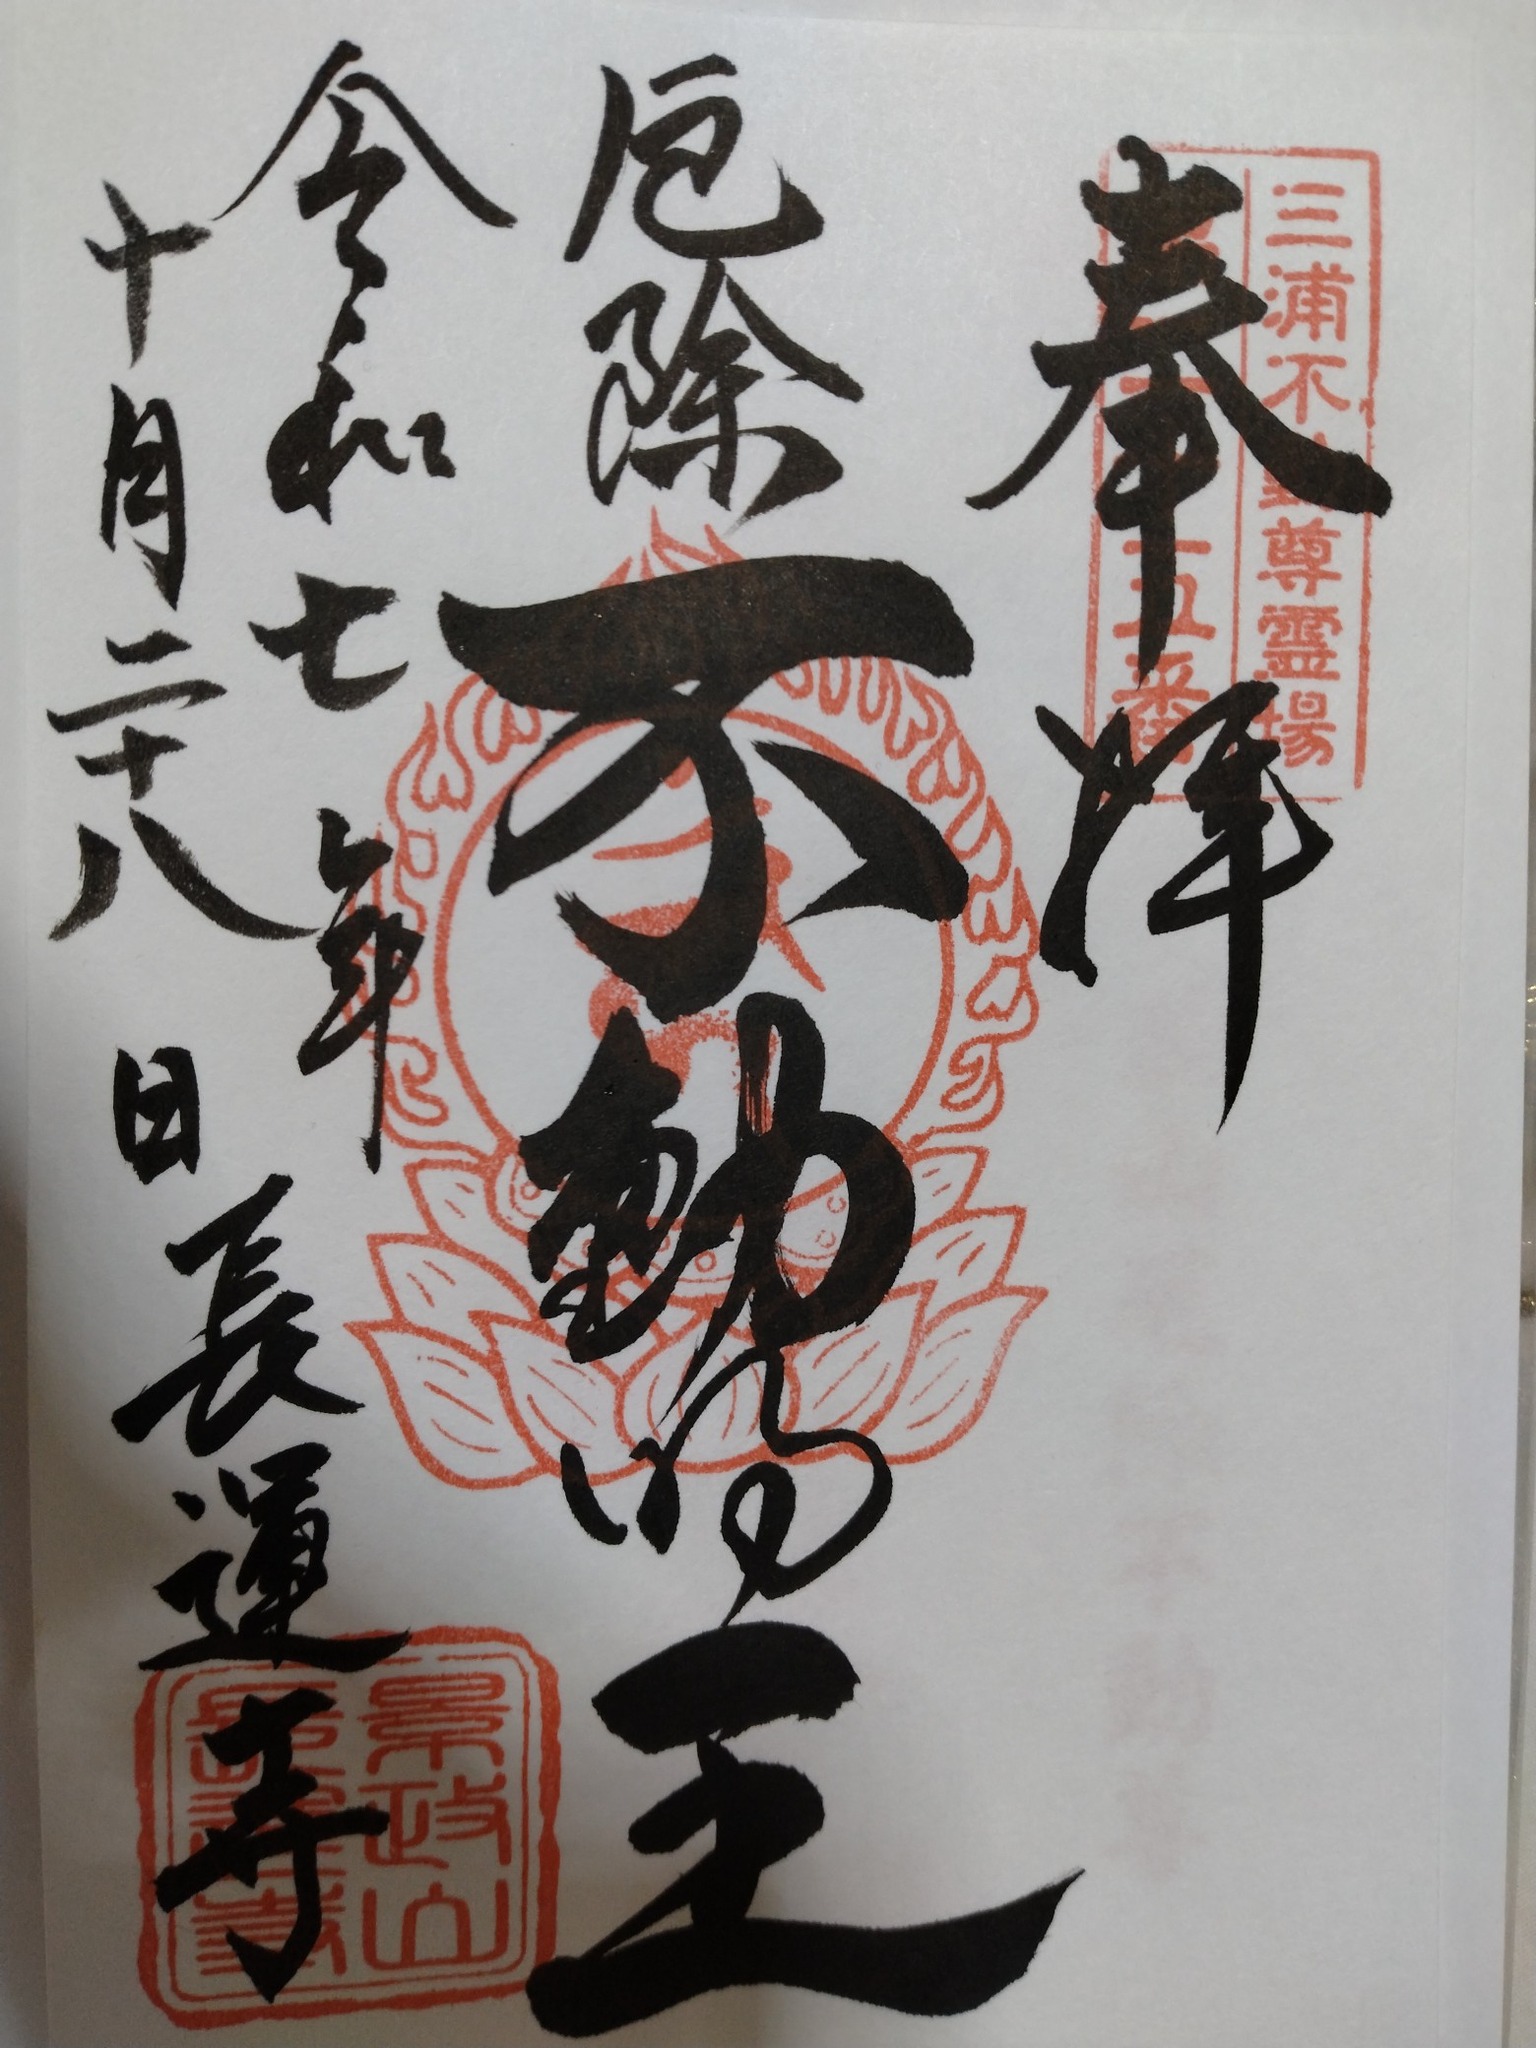 三浦不動尊霊場
奉拝
厄除
不動明王
令和七年
十月二十八日
長運寺
景政山
長運寺